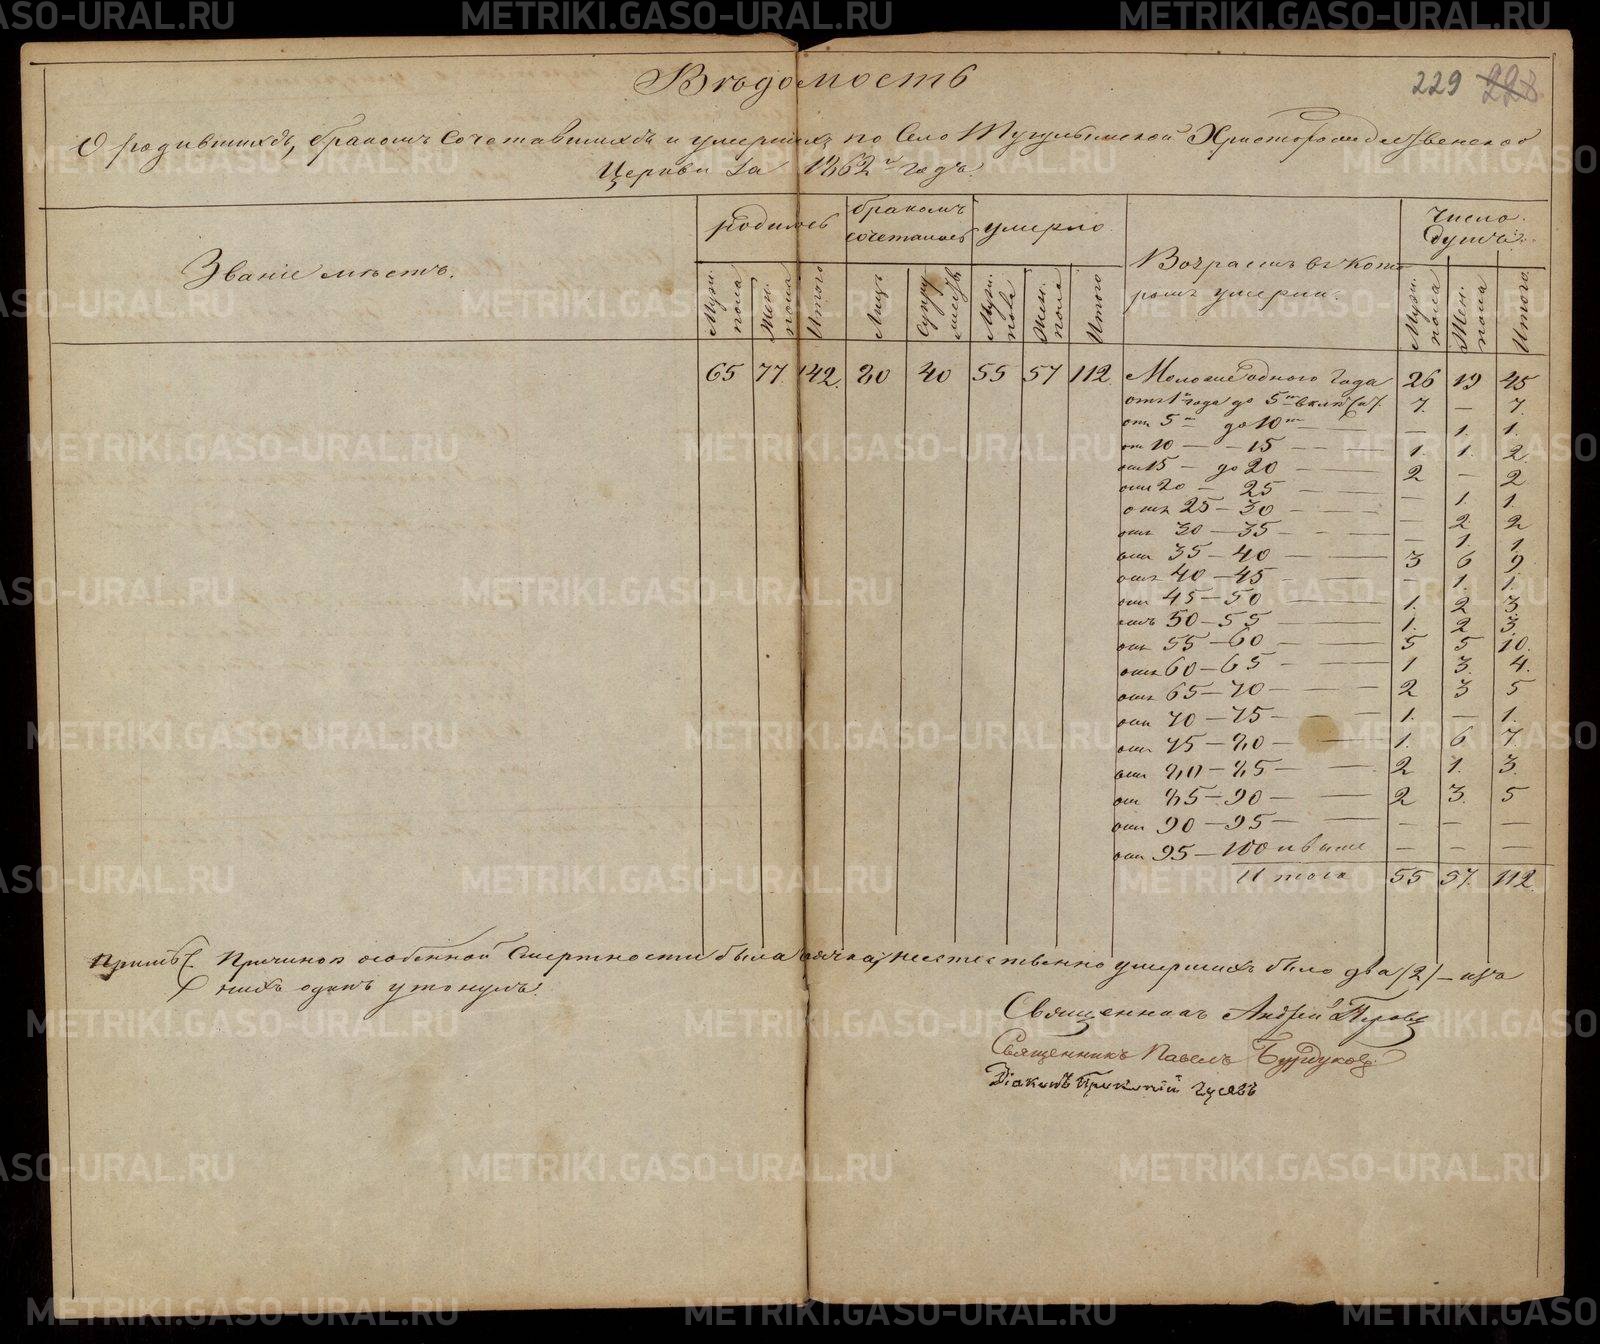 Вѣдомость
229 228
О родившихся, бракомъ сочетавшихся и умершихъ по Село Тугулымской Христорождественской
Церкви за 1862й годъ.
Званіе мѣстъ.
родилось
бракомъ сочеталось
умерло
Возрастъ въ которомъ умерли.
Число душъ.
Муж. пола
Жен. пола
Итого
Лицъ
Супружествъ
Муж. пола
Жен. пола
Итого
Муж. пола
Жен. пола
Итого
65 77 142 80 40 55 57 112 Моложе одного года 26 19 45
отъ 1го года до 5ти включ. 7. — 7.
отъ 5ти до 10ти — 1. 1.
отъ 10 — 15 — 1. 1. 2
отъ 15 — до 20 — 2 — 2
отъ 20 — 25 — — 1. 1.
отъ 25 — 30 — — 2. 2
отъ 30 — 35 — — 1. 1.
отъ 35 — 40 — 3 6 9
отъ 40 — 45 — — 1. 1.
отъ 45 — 50 — 1. 2 3.
отъ 50 — 55 — 1. 2 3.
отъ 55 — 60 — 5 5 10.
отъ 60 — 65 — 1 3. 4.
отъ 65 — 70 — 2 3 5
отъ 70 — 75 — 1. — 1.
отъ 75 — 80 — 1. 6 7.
отъ 80 — 85 — 2 1. 3.
отъ 85 — 90 — 2 3. 5
отъ 90 — 95 — — — —
отъ 95 — 100 и выше — — —
Итого 55 57. 112.
Примѣч. Причиною особенной смертности была горячка, неестественно умершихъ было два /2/ — изъ
нихъ одинъ утонулъ.
Священникъ Андрей
Священникъ Павелъ Бурдуковъ
Діаконъ Прокопій Гусевъ
METRIKI.GASO-URAL.RU